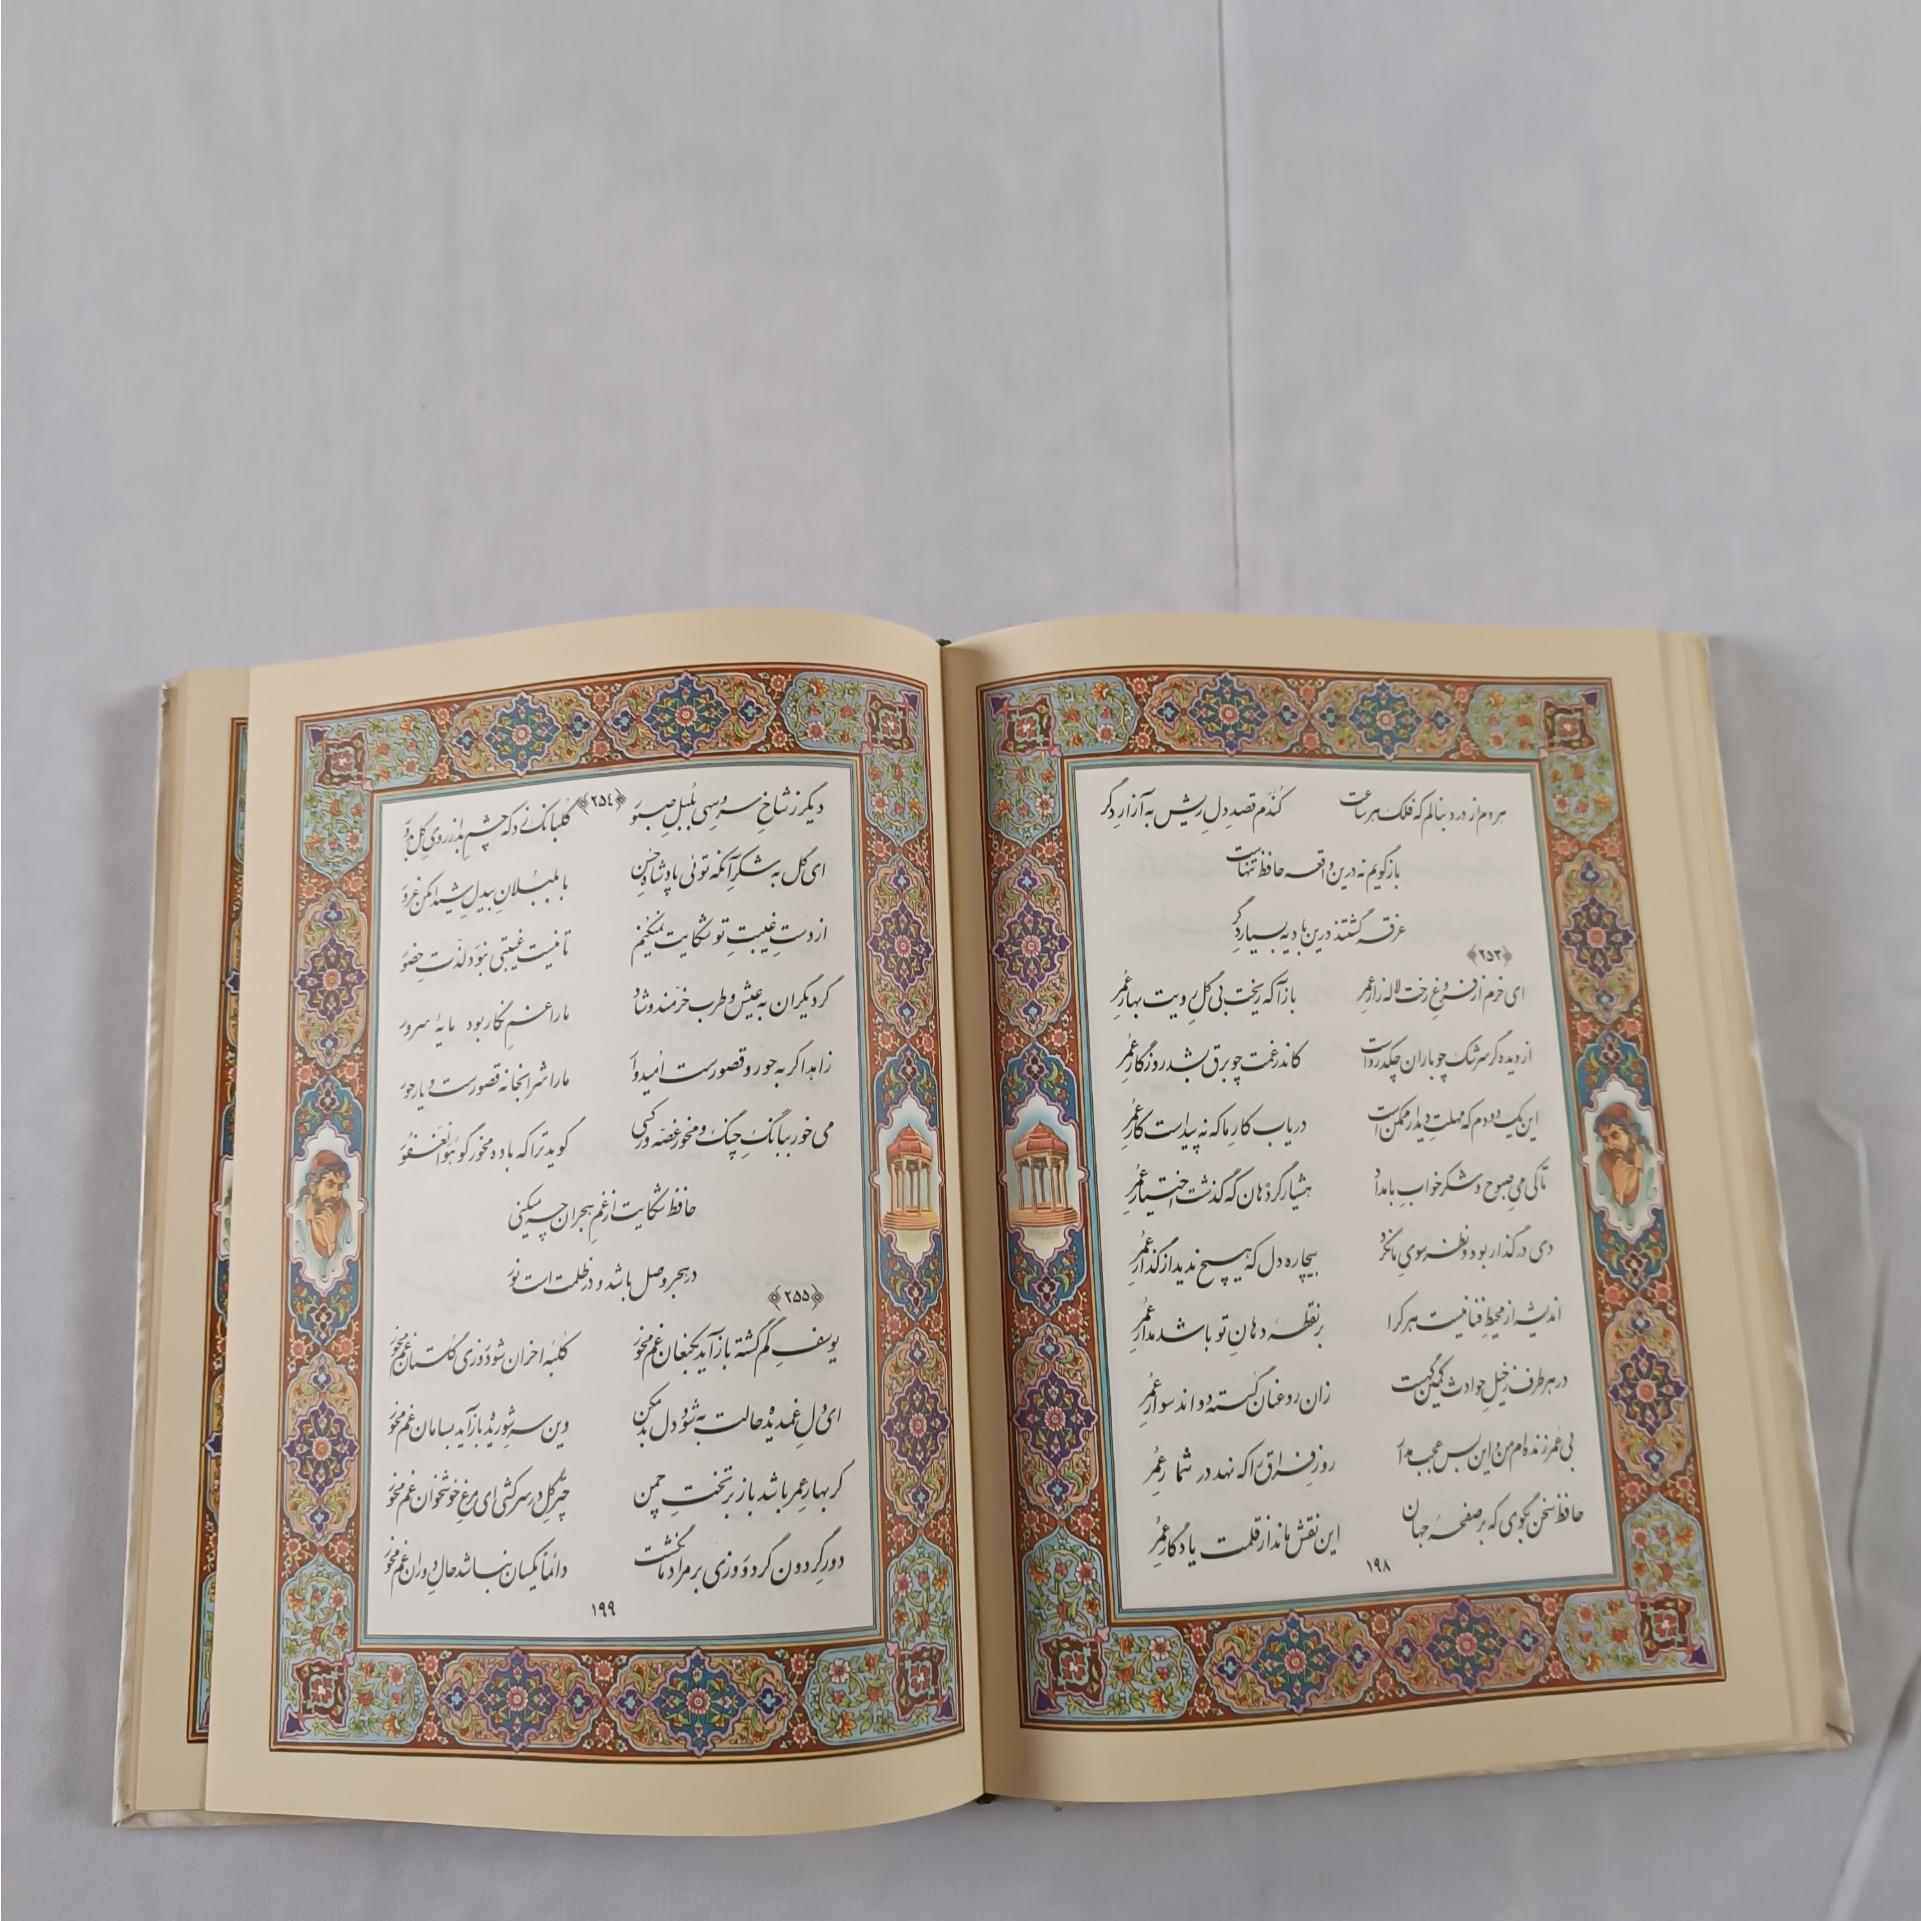 هر دم از درد بنالم که فلک هر ساعت کُنَدم قصدِ دلِ ریش به آزارِ دگر
بازگویم نه درین واقعه حافظ تنهاست
غرقه گشتند درین بادیه بسیارِ دگر
﴿۲۵۳﴾
ای خرم از فروغِ رخت لاله زارِ عُمر بازآ که ریخت بی گلِ رویت بهارِ عُمر
از دیده گر سرشک چو باران چکد رواست کاندر غمت چو برق بشد روزگارِ عُمر
این یک دو دم که مهلتِ دیدار ممکن است دریاب کارِ ما که نه پیداست کارِ عُمر
تا کی می صبوح و شکر خوابِ بامداد هشیار گرد هان که گذشت اختیارِ عُمر
دی در گذار بود و نظر سوی ما نکرد بیچاره دل که هیچ ندید از گذارِ عُمر
اندیشه از محیطِ فنا نیست هر کرا بر نقطهٔ دهانِ تو باشد مدارِ عُمر
در هر طرف ز خیلِ حوادث کمین گهیست زان رو عنان گسسته دواند سوارِ عُمر
بی عُمر زنده ام من و این بس عجب مدار روزِ فراق را که نهد در شمارِ عُمر
حافظ سخن بگوی که بر صفحهٔ جهان این نقش ماند از قلمت یادگارِ عُمر
۱۹۸
﴿۲۵٤﴾
دیگر ز شاخِ سروِ سهی بُلبلِ صبور گلبانگ زد که چشمِ بد از روی گل بدور
ای گل به شکرِ آنکه توئی پادشاهِ حُسن با بلبلانِ بیدلِ شیدا مکن غرور
از دستِ غیبتِ تو شکایت نمیکنم تا نیست غیبتی نبود لذّتِ حضور
گر دیگران به عیش و طرب خرّمند و شاد ما را غمِ نگار بود مایهٔ سرور
زاهد اگر به حور و قصورست اُمیدوار ما را شرابخانه قصورست و یار حور
می خور ببانگِ چنگ و مخور غصّه ور کسی گوید ترا که باده مخور گو هُوَ الْغَفور
حافظ شکایت از غمِ هجران چه میکنی
در هجر وصل باشد و در ظلمت است نور
﴿۲۵۵﴾
یوسفِ گم گشته بازآید بکنعان غم مخور کلبهٔ احزان شود روزی گلستان غم مخور
ای دلِ غمدیده حالت به شود دل بد مکن وین سرِ شوریده بازآید بسامان غم مخور
گر بهارِ عمر باشد باز بر تختِ چمن چترِ گل در سر کشی ای مرغِ خوشخوان غم مخور
دورِ گردون گر دو روزی بر مرادِ ما نگشت دائماً یکسان نباشد حالِ دوران غم مخور
۱۹۹